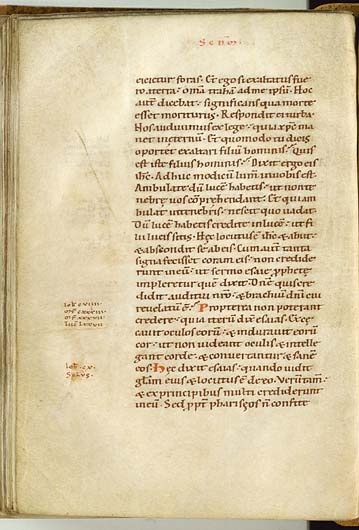 eicietur foras. Et ego si exaltatus fue
ro a terra. om̄ia trahā ad me ipsū. Hoc
autē dicebat. significans qua morte
esset moriturus. Respondit ei turba.
Nos audiuimus ex lege. quia xp̄c ma
net in eternū. Et quomodo tu dicis
oportet exaltari filium hominis. Quis
est iste filius hominis. Dixit ergo eis
ih̄c. Adhuc modicū lum̄ in uobis est.
Ambulate dū lucē habetis. ut non te
nebrę uos cōprehendant. Et qui am
bulat in tenebris. nescit quo uadat.
Dū lucē habetis credite in lucē. ut fi
lii lucis sitis. Hęc locutus ē ih̄c. & abiit.
& abscondit se ab eis. Cum autē tanta
signa fecisset coram eis. non credide
runt in eū. ut sermo esaię p̄phetę
impleretur quē dixit. Dn̄e quis cre
didit auditui nr̄o. & brachiū dn̄i cui
reuelatū ē. Propterea non poterant
credere. quia iterū dix̄ esaias. Excę
cauit oculos eorū. & indurauit eorū
cor. ut non uideant oculis. & intelle
gant corde. & conuertantur. & sanē
eos. Hęc dixit esaias. quando uidit
gl̄am eius & locutus ē de eo. Verūtam̄
& ex principibus multi crediderunt
in eū. Sed pp̄t phariseos n̄ confite